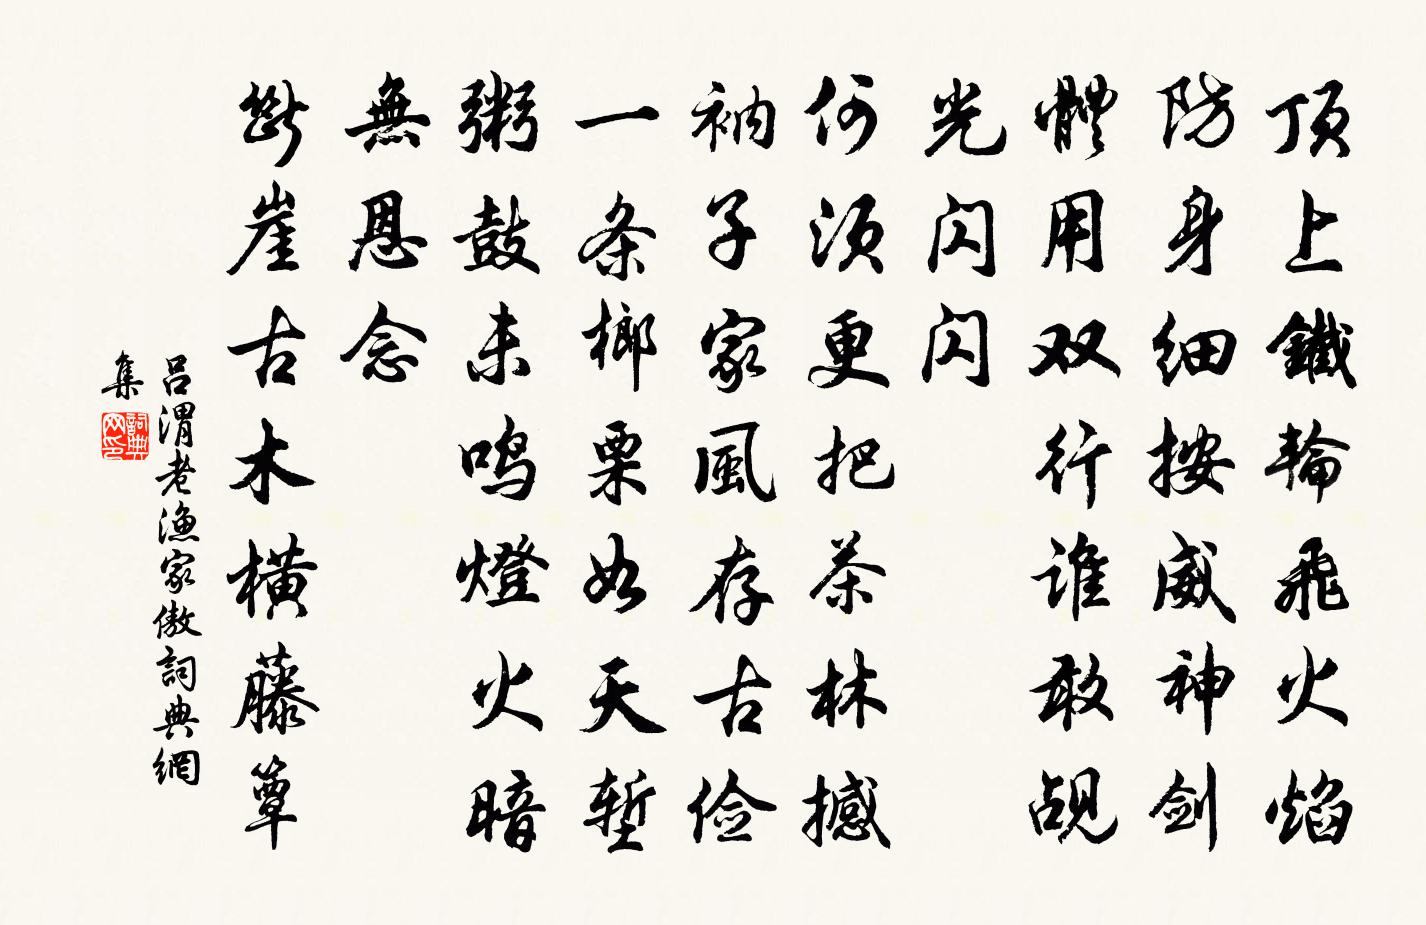 顶上鐵輪飛火焰
防身细按威神剑
體用双行谁敢觇
光闪闪
何须更把茶林撼
衲子家風存古俭
一条榔栗如天堑
粥鼓未鸣燈火暗
無恩念
斷崖古木橫藤簟
吕渭老渔家傲詞典網
集
詞典网印